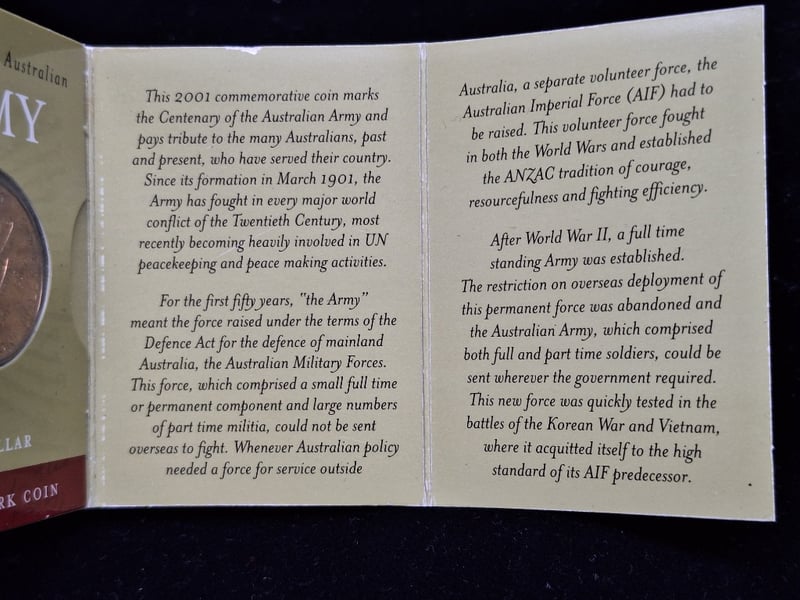 Australian
MY
LLAR
RK COIN
This 2001 commemorative coin marks
the Centenary of the Australian Army and
pays tribute to the many Australians, past
and present, who have served their country.
Since its formation in March 1901, the
Army has fought in every major world
conflict of the Twentieth Century, most
recently becoming heavily involved in UN
peacekeeping and peace making activities.
For the first fifty years, "the Army"
meant the force raised under the terms of the
Defence Act for the defence of mainland
Australia, the Australian Military Forces.
This force, which comprised a small full time
or permanent component and large numbers
of part time militia, could not be sent
overseas to fight. Whenever Australian policy
needed a force for service outside
Australia, a separate volunteer force, the
Australian Imperial Force (AIF) had to
be raised. This volunteer force fought
in both the World Wars and established
the ANZAC tradition of courage,
resourcefulness and fighting efficiency.
After World War II, a full time
standing Army was established.
The restriction on overseas deployment of
this permanent force was abandoned and
the Australian Army, which comprised
both full and part time soldiers, could be
sent wherever the government required.
This new force was quickly tested in the
battles of the Korean War and Vietnam,
where it acquitted itself to the high
standard of its AIF predecessor.